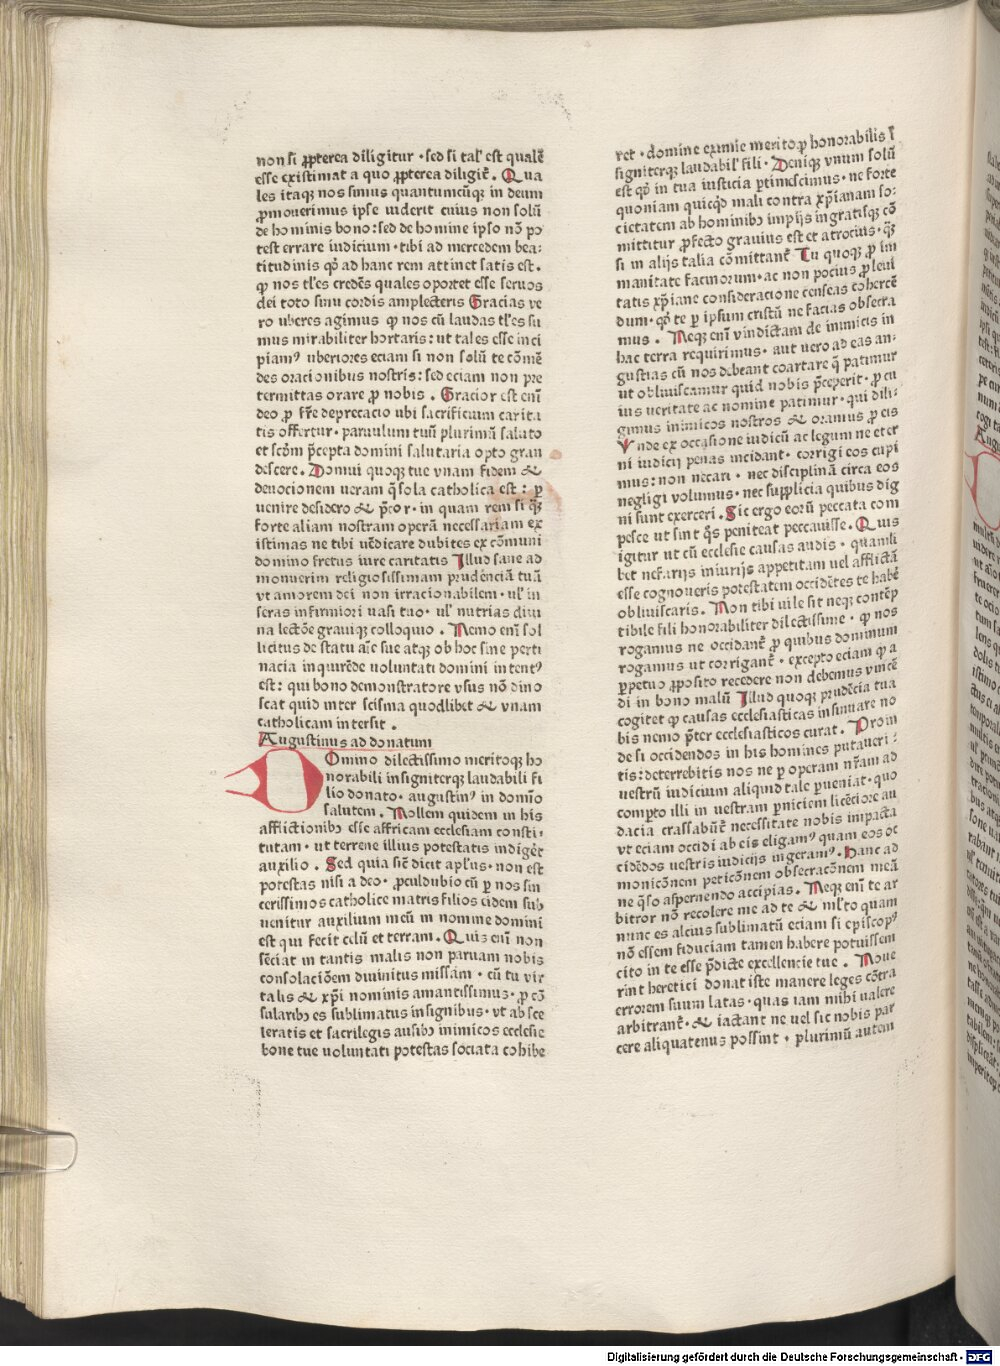 non si ꝓpterea diligitur · sed si tal' est qualē
esse existimat a quo ꝓpterea diligit̄ . Qua
les itaqꝫ nos simus quantumcūqꝫ in deum
ꝓmouerimus ipse uiderit cuius non solū
de hominis bono : sed de homine ipso nō po
test errare iudicium · tibi ad mercedem bea:
titudinis qđ ad hanc rem attinet satis est .
ꝙ nos tl'es credēs quales oportet esse seruos
dei toto sinu cordis amplecteris Gracias ve
ro uberes agimus ꝙ nos cū laudas tl'es su
mus mirabiliter hortaris : ut tales esse inci
piamꝰ uberiores eciam si non solū te cōmē
des oracionibus nostris : sed eciam non pre
termittas orare ꝓ nobis . Gracior est enī
deo ꝓ fr̄e deprecacio ubi sacrificium carita
tis offertur · paruulum tuū plurimū saluto
et scd̄m p̄cepta domini salutaria opto gran
descere . Domui quoqꝫ tue vnam fidem &
deuocionem ueram q̄ sola catholica est : ꝑ
uenire desidero & p̄cor · in quam rem si qꝫ
forte aliam nostram operā necessariam ex
istimas ne tibi uēdicare dubites ex cōmuni
domino fretus iure caritatis Illud sane ad
monuerim religiosissimam prudēnciā tuā
vt amorem dei non irracionabilem · ul' in
seras infirmiori uasi tuo · ul' nutrias diui
na lectōe grauiqꝫ colloquio . Nemo enī sol
licitus de statu aīe sue atqꝫ ob hoc sine perti
nacia inquirēde voluntati domini intentꝰ
est : qui bono demonstratore vsus nō dino
scat quid inter scisma quodlibet & vnam
catholicam intersit .
Augustinus ad donatum
Domino dilectissimo meritoqꝫ ho
norabili insigniterqꝫ laudabili fi
lio donato · augustinꝰ in domīo
salutem . Nollem quidem in his
afflictionibꝰ esse affricam ecclesiam consti:
tutam · ut terrene illius potestatis indigēt
auxilio . Sed quia sīc dicit apl'us · non est
potestas nisi a deo · ꝓculdubio cū ꝑ nos sin
cerissimos catholice matris filios eidem sub
uenitur auxilium meū in nomine domini
est qui fecit celū et terram . Quis enī non
sēciat in tantis malis non paruam nobis
consolaciōem diuinitus missam · cū tu vir
talis & xp̄i nominis amantissimus · ꝓ cō
sularibꝰ es sublimatus insignibus · vt ab sce
leratis et sacrilegis ausibꝰ inimicos ecclesie
bone tue uoluntati potestas sociata cohibe
ret · domine eximie merito ꝑ honorabilis ī
signiterqꝫ laudabil' fili . Deniqꝫ vnum solū
est qđ in tua iusticia ꝑtimescimus · ne forte
quoniam quicqđ mali contra xp̄ianam so:
cietatem ab hominibꝰ impijs ingratisqꝫ cō
mittitur ꝓfecto grauius est et atrocius · qꝫ
si in alijs talia cōmittant̄ Tu quoqꝫ ꝓ im
manitate facinorum · ac non pocius ꝓ leni
tatis xp̄iane consideracione censeas cohercē
dum · qđ te ꝑ ipsum cristū ne facias obsecra
mus . Neqꝫ enī vindictam de inimicis in
hac terra requirimus · aut uero ad eas an:
gustias cū nos debeant coartare q̄ patimur
ut obliuiscamur quid nobis p̄ceperit · ꝓ cu
ius ueritate ac nomine patimur · qui dili:
gimus inimicos nostros & oramus ꝓ eis
Vnde ex occasione iudicū ac legum ne et er
ni iudicij penas incidant · corrigi eos cupi
mus : non necari · nec disciplinā circa eos
negligi volumus · nec supplicia quibus dig
ni sunt exerceri . Sic ergo eorū peccata com
pesce ut sint q̄s peniteat peccauisse . Quis
igitur ut cū ecclesie causas audis · quamli
bet nefarijs iniurijs appetitam uel afflictā
esse cognoueris potestatem occidētes te habē
obliuiscaris . Non tibi uile sit neqꝫ contēp
tibile fili honorabiliter dilectissime · ꝙ nos
rogamus ne occidant̄ ꝓ quibus dominum
rogamus ut corrigant̄ · excepto eciam ꝙ a
ꝑpetuo ꝓposito recedere non debemus vincē
di in bono malū Illud quoqꝫ prudēcia tua
cogitet ꝙ causas ecclesiasticas insinuare no
bis nemo p̄ter ecclesiasticos curat . Proin
de si occidendos in his homines putaueri :
tis : deterrebitis nos ne ꝑ operam nr̄am ad
uestrū iudicium aliquid tale ꝑueniat · quo
compto illi in uestram ꝑniciem licēciore au
dacia crassabūt̄ necessitate nobis impacta
vt eciam occidi ab eis eligamꝰ quam eos oc
cidēdos uestris iudicijs ingeramꝰ . Hanc ad
monicōnem peticōnem obsecracōnem meā
ne q̄so aspernendo accipias . Neqꝫ enī te ar
bitror nō recolere me ad te & ml'to quam
nunc es alcius sublimatū eciam si episcopꝰ
nō essem fiduciam tamen habere potuissem
cito in te esse p̄dicte excellencie tue . Noue
rint heretici donatiste manere leges cōtra
errorem suum latas · quas iam nihil ualere
arbitrant̄ · & iactant ne uel sic nobis par
cere aliquatenus possint · plurimū autem
Digitalisierung gefördert durch die Deutsche Forschungsgemeinschaft - DFG